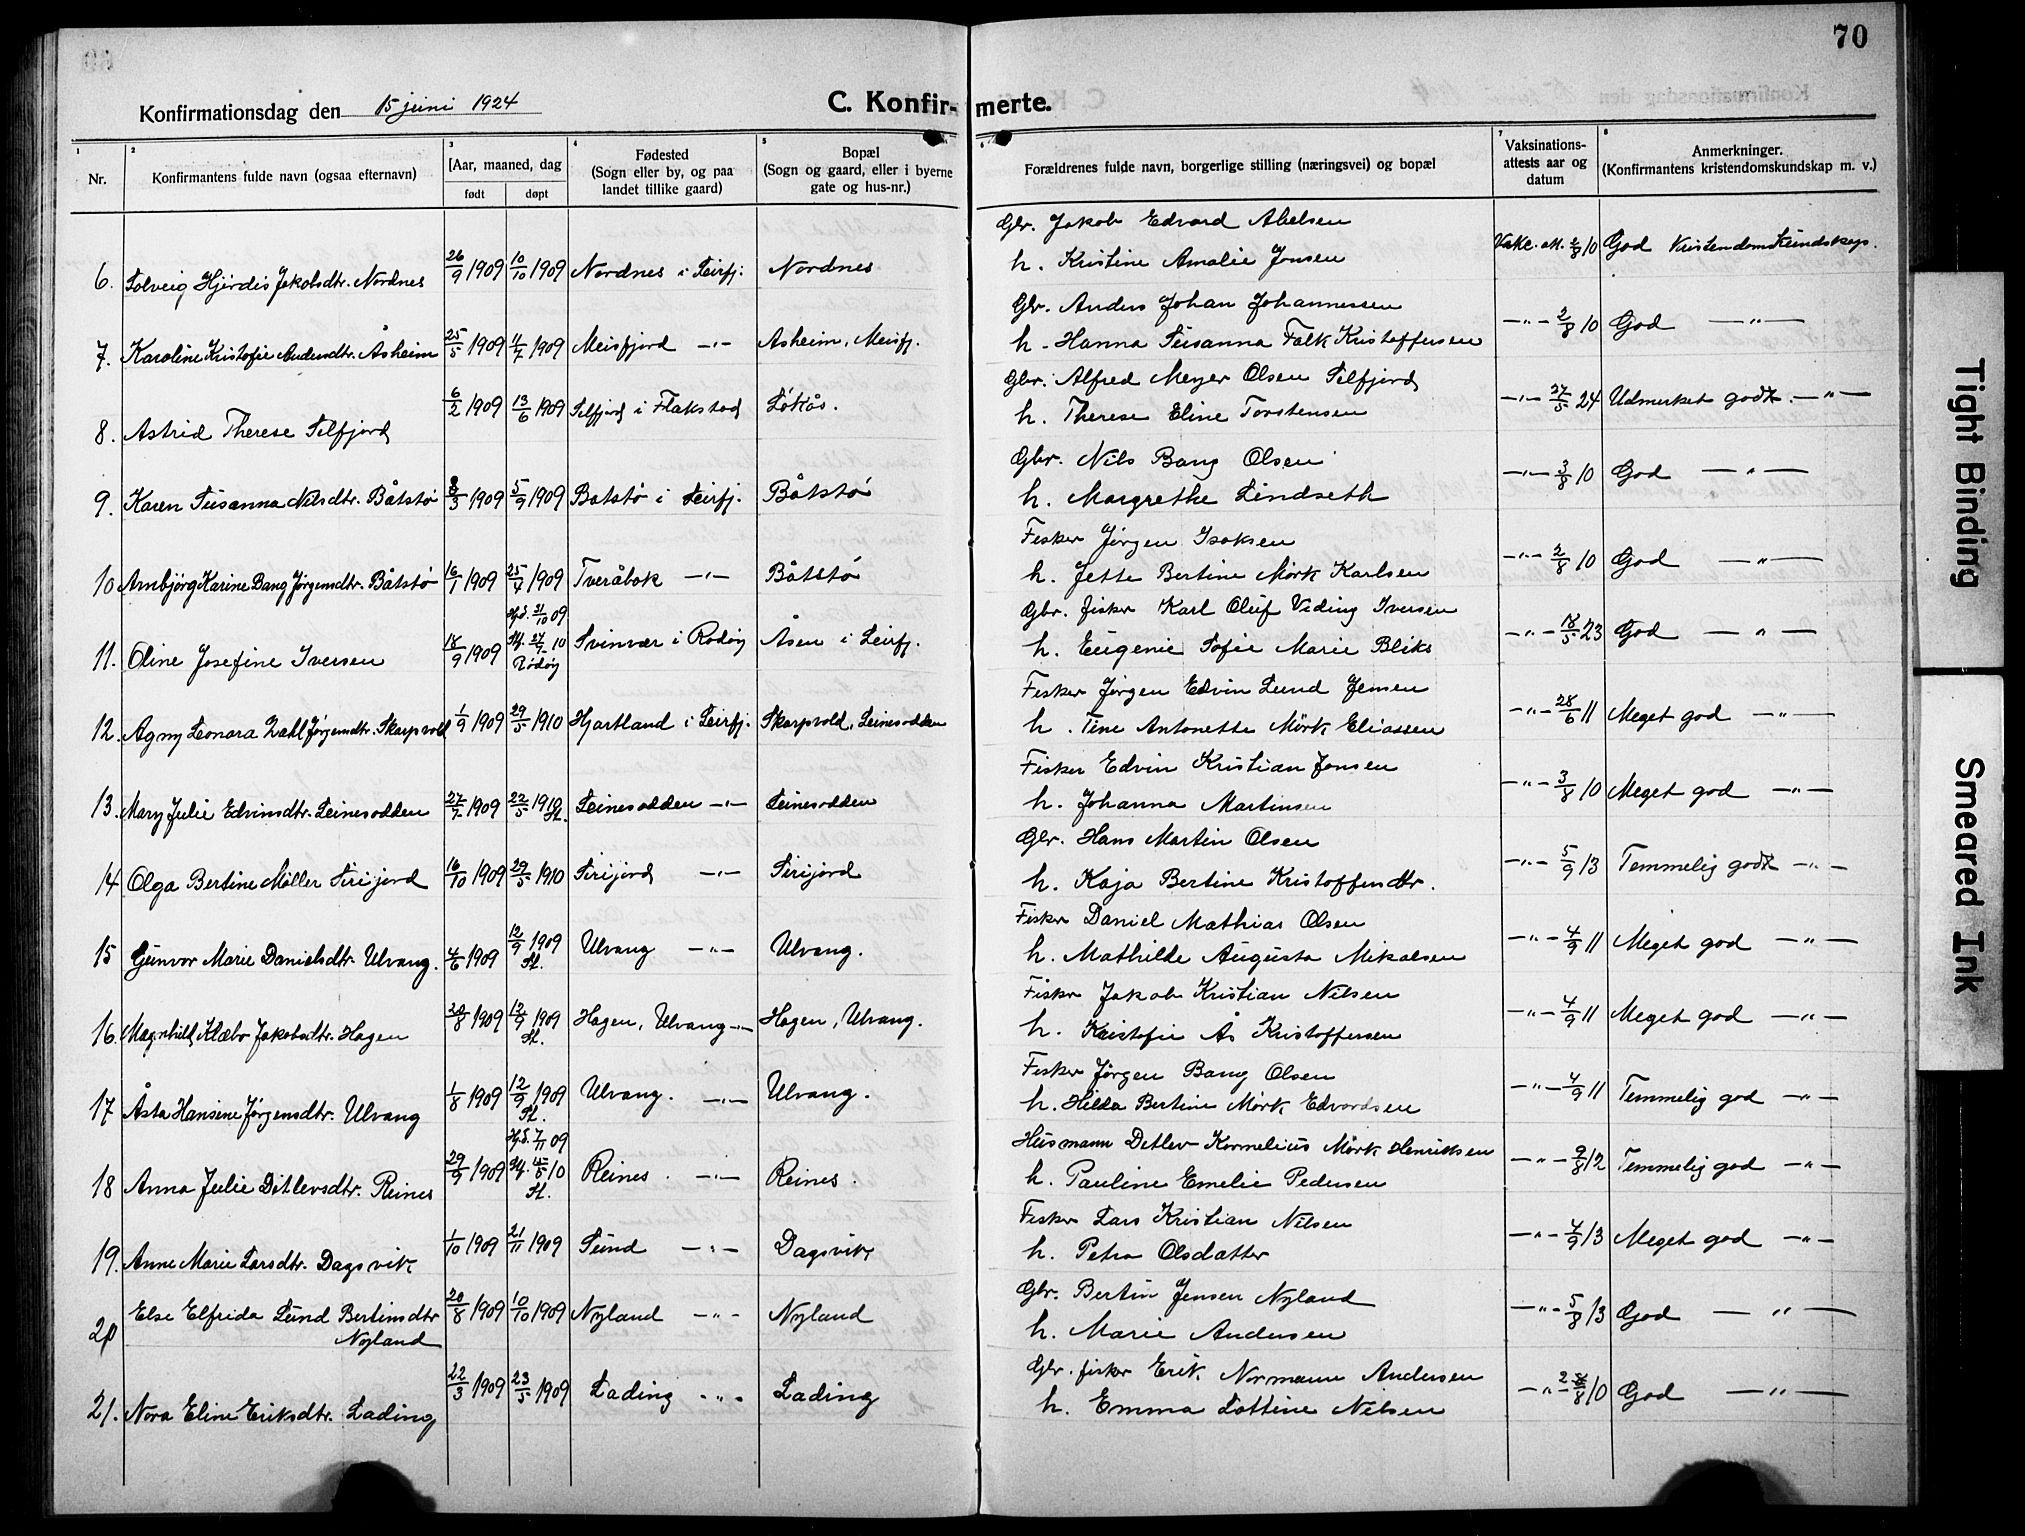 70
Konfirmationsdag den 15 juni 1924
C. Konfir- merte.
1 2 3 4 5 6 7 8
Nr.
Konfirmantens fulde navn (ogsaa efternavn)
[Aar, maaned, dag
født døpt
Fødested
(Sogn eller by, og paa
landet tillike gaard)
Bopæl
(Sogn og gaard, eller i byerne
gate og hus-nr.)
Forældrenes fulde navn, borgerlige stilling (næringsvei) og bopæl
Vaksinations-
attests aar og
datum
Anmerkninger.
(Konfirmantens kristendomskundskap m. v.)
Gbr. Jakob Edvard Abelsen
6. Solveig Hjördis Jakobsdtr. Nordnes 26/9 1909 10/10 1909 Nordnes i Leirfj. Nordnes h. Kristine Amalie Jonsen Vakc. att. 2/8 10 God Kristendomskundskap.
Gbr. Anders Johan Johannessen
7. Karoline Kristofie Andersdtr. Åsheim 25/5 1909 11/7 1909 Meisfjord -"- Åsheim, Meisfj. h. Hanna Susanna Falk Kristoffersen -"- 2/8 10 God -"-
Gbr. Alfred Meyer Olsen Selfjord
8. Astrid Therese Selfjord 6/2 1909 13/6 1909 Selfjord i Flakstad Løkås. h. Therese Eline Torstensen -"- 27/5 24 Udmerket godt -"-
Gbr. Nils Bang Olsen
9. Karen Susanna Nilsdtr. Båtstø 8/3 1909 5/9 1909 Båtstø i Leirfj. Båtstø h. Margrethe Lindseth -"- 3/8 10 God -"-
Fisker Jörgen Isaksen
10 Arnbjörg Karine Bang Jörgensdtr. Båtstø 16/1 1909 25/4 1909 Tveråbak -"- Båtstø h. Jette Bertine Mörk Karlsen -"- 2/8 10 God -"-
Hjd. 31/10 09
Gbr. fisker Karl Oluf Viding Iversen
11. Oline Josefine Iversen 18/9 1909 St. 27/7 10 Rödöy Svinvær i Rödöy Åsen i Leirfj. h. Eugenie Sofie Marie Bliks -"- 18/5 23 God -"-
Fisker Jörgen Edvin Lund Jensen
12. Agny Leonara Zahl Jörgensdtr. Skarpvold 1/9 1909 29/5 1910 Hjartland i Leirfj. Skarpvold, Leinesodden h. Tine Antonette Mörk Eliassen -"- 28/6 11 Meget god -"-
Fisker Edvin Kristian Jonsen
13. Mary Julie Edvinsdtr. Leinesodden 27/7 1909 22/5 1910 St. Leinesodden -"- Leinesodden h. Johanna Martinsen -"- 3/8 10 Meget god -"-
Gbr. Hans Martin Olsen
14 Olga Bertine Möller Sirijord 16/10 1909 29/5 1910 Sirijord -"- Sirijord h. Kaja Bertine Kristoffersdtr. -"- 5/9 13 Temmelig godt -"-
Fisker Daniel Mathias Olsen
15 Gunvor Marie Danielsdtr. Ulvang. 4/6 1909 12/9 1909 St. Ulvang -"- Ulvang. h. Mathilde Augusta Mikalsen -"- 4/9 11 Meget god -"-
Fisker Jakob Kristian Nilsen
16. Magnhild Klæbo Jakobsdtr. Hagen 20/8 1909 12/9 1909 St. Hagen, Ulvang -"- Hagen, Ulvang. h. Kristofie Ås Kristoffersen -"- 4/9 11 Meget god -"-
Fisker Jörgen Bang Olsen
17 Åsta Hansine Jörgensdtr. Ulvang 1/8 1909 12/9 1909 St. Ulvang. -"- Ulvang. h. Hilda Bertine Mörk Edvardsen -"- 4/9 11 Temmelig god -"-
Hjd. 7/11 09
Husmann Ditlev Kornelius Mörk Henriksen
18 Anna Julie Ditlevsdtr. Reines 29/9 1909 4/5 10 St. Reines. -"- Reines. h. Pauline Emelie Pedersen -"- 9/8 12 Temmelig god -"-
Fisker Lars Kristian Nilsen
19. Anne Marie Larsdtr. Dagsvik 1/10 1909 21/11 1909 Sund -"- Dagsvik h. Petra Olsdatter -"- 4/9 13 Meget god -"-
Gbr. Bertin Jensen Nyland
20 Else Elfrida Lund Bertinsdtr Nyland 20/8 1909 10/10 1909 Nyland -"- Nyland h. Marie Andersen -"- 5/8 13 God -"-
Gbr. fisker Erik Normann Andersen
21. Nora Eline Eriksdtr. Lading 22/3 1909 23/5 1909 Lading -"- Lading h. Emma Lottine Nilsen -"- 2/8 10 God -"-
Tight Binding
Smeared Ink